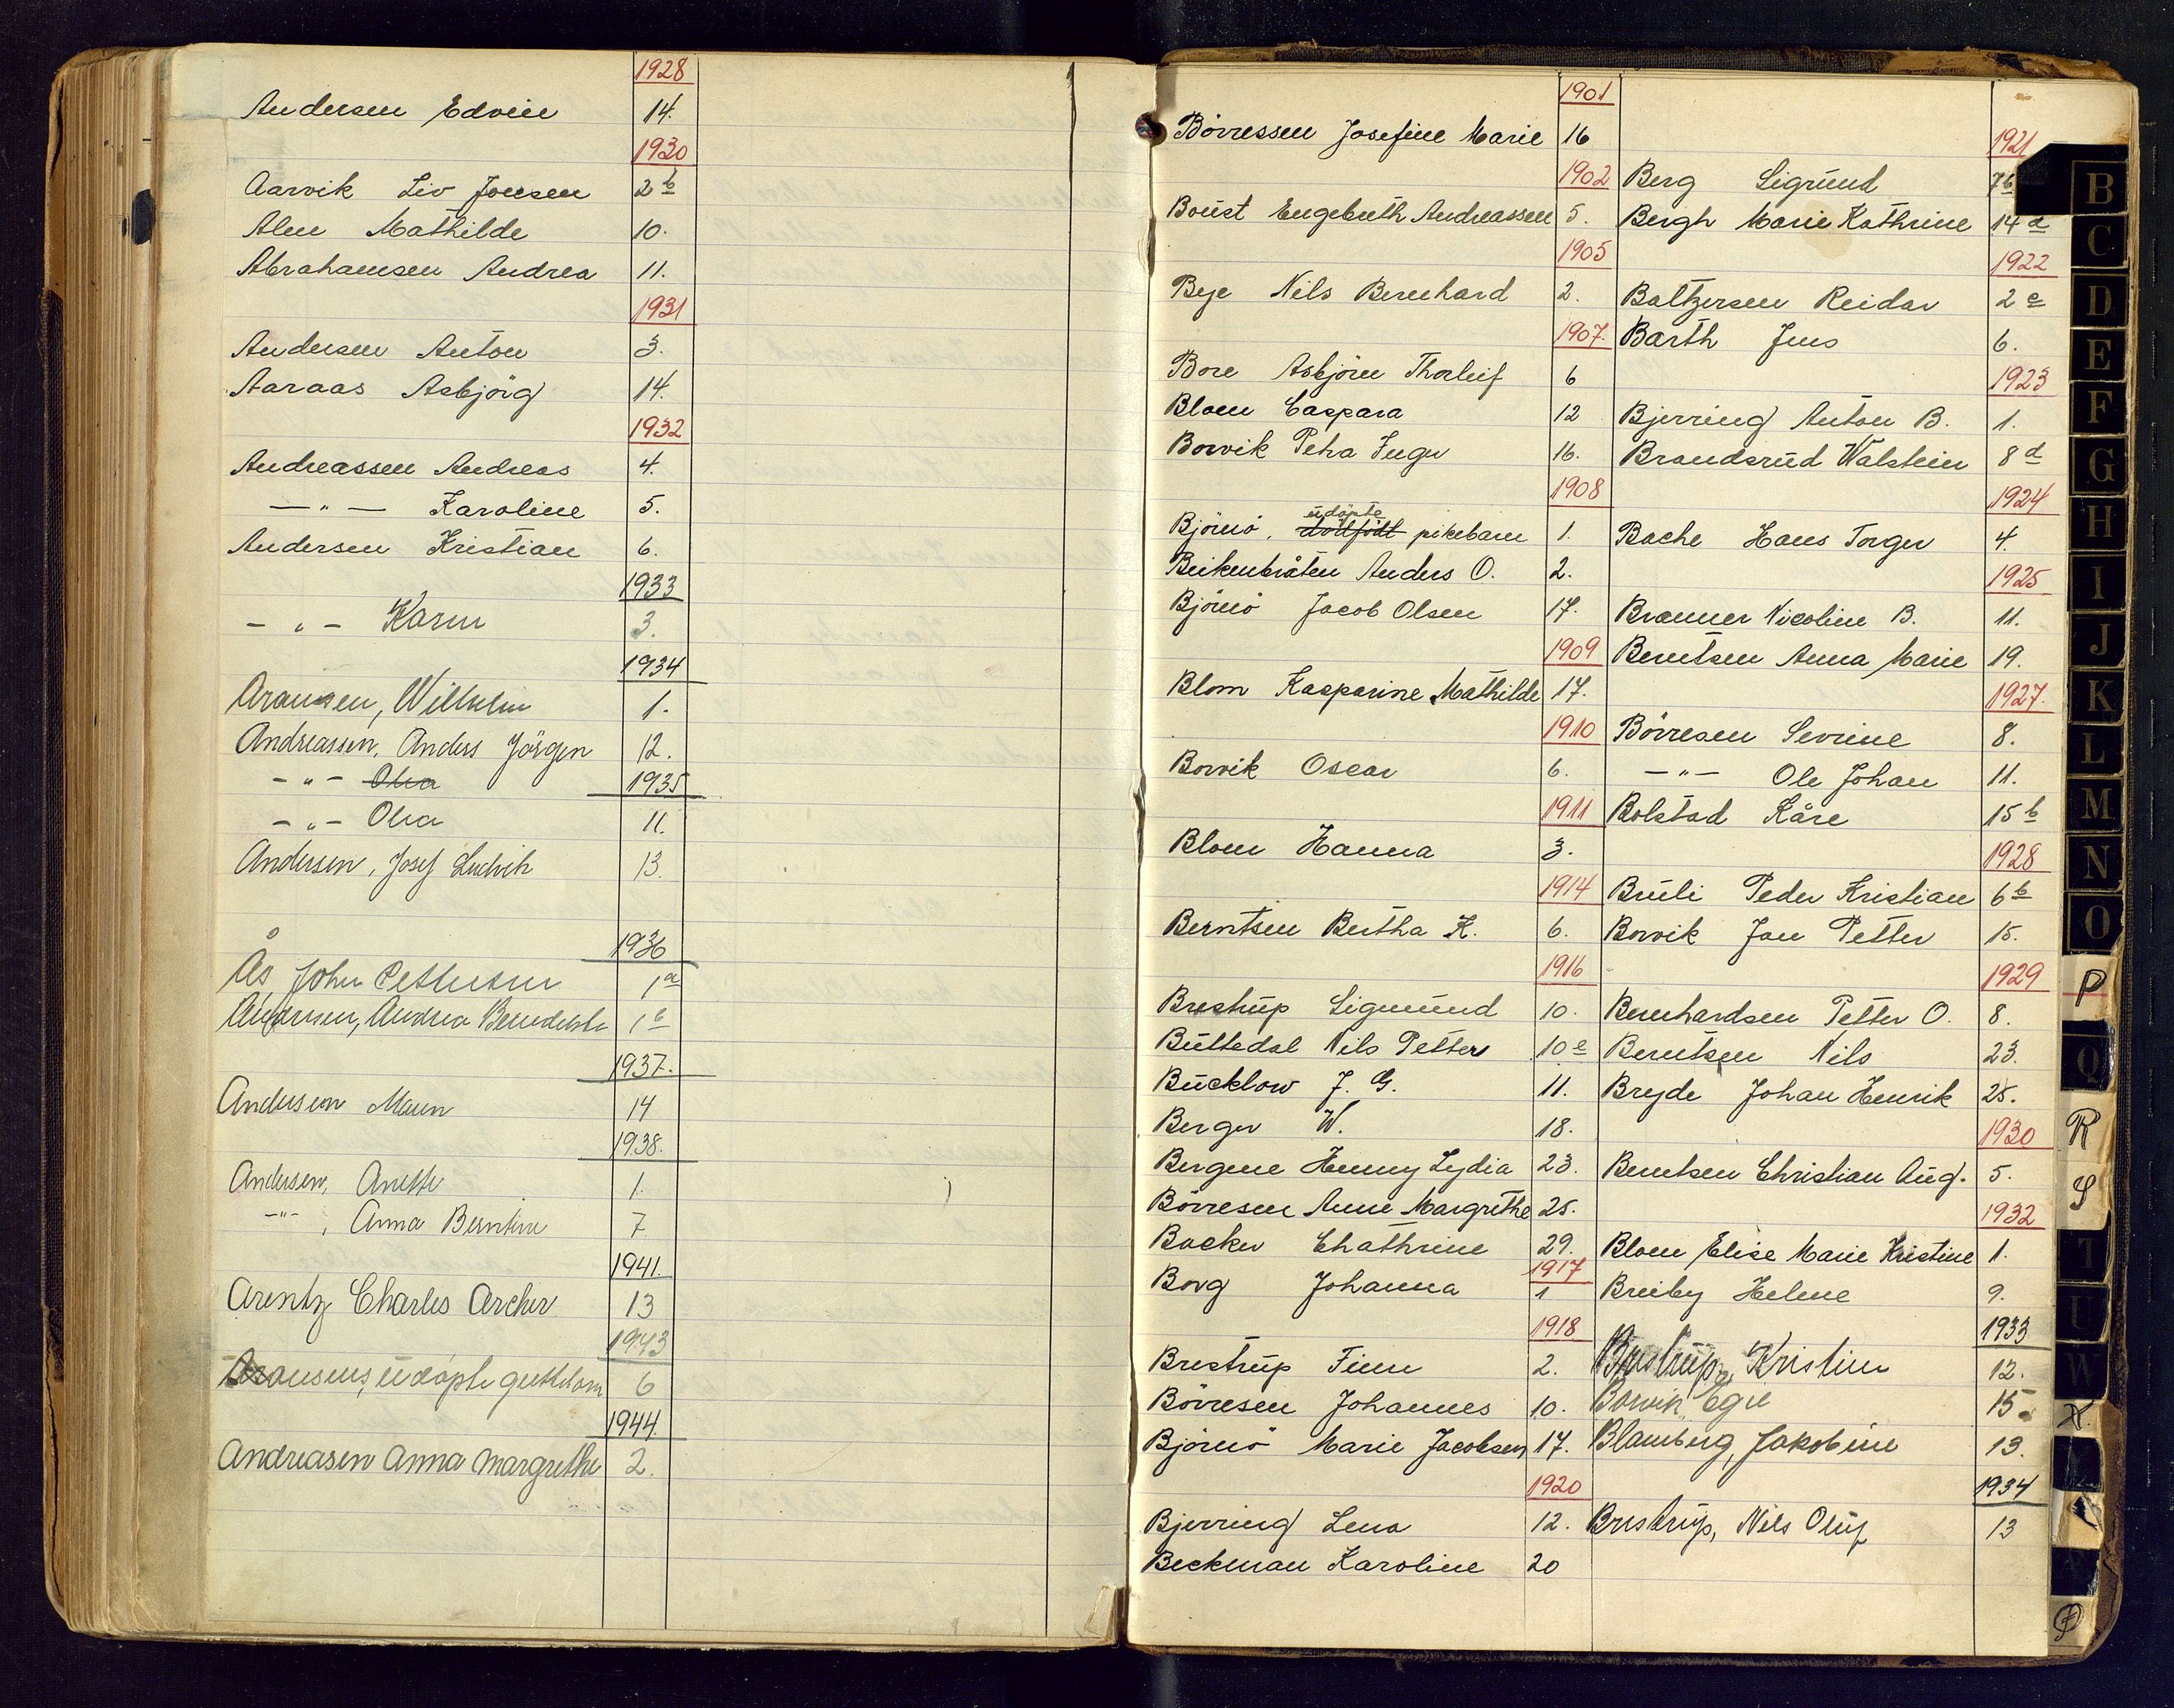 1928
Andersen Edvin 14.
1930
Aarvik Liv Jonsen 2 b
Alm Mathilde 10.
Abrahamsen Andrea 11.
1931
Andersen Anton 3.
Aaraas Asbjörg 14.
1932
Andreassen Andreas 4.
— " — Karoline 5.
Andersen Kristian 6.
1933
- " - Karin 3.
1934
Aransen, Wilhelm 1.
Andreassen, Anders Jörgen 12.
- " - Olea 1935
- " - Olea 11.
Andersen, Josef Ludvik 13.
1936
Ås, John Pettersen 1 a
Andersen, Andrea Benedikte 1 b
1937.
Andersen Maren 14
1938.
Andersen, Anette 1.
- " - , Anna Berntine 7
1941.
Arentz Charles Archer 13
1943
Aransens, udöpte guttebarn 6
1944.
Andreasen Anna Margrethe 2.
1901
Börressen Josefine Marie 16
1902
Boüst Engebreth Andreassen 5.
1905
Bye Nils Bernhard 2.
1907.
Bore Asbjörn Thorleif 6
Blom Caspara 12
Borvik Petra Inger 16.
1908
udöpte
Björnö, dödfödt pikebarn 1.
Beikenbråten Anders O. 2.
Björnö Jacob Olsen 17.
1909
Blom Kasparine Mathilde 17.
1910
Borvik Oscar 6.
1911
Blom Hanna 3.
1914
Berntsen Bertha K. 6.
1916
Brestrüp Sigmünd 10.
Büttedal Nils Petter 10 e
Bücklow J. G. 11.
Berger W. 18.
Bergene Henny Lydia 23.
Börresen Anne Margrethe 25.
Backer Chathrine 29.
1917
Borg Johanna 1
1918
Brestrüp Finn 2.
Börresen Johannes 10.
Björnö Marie Jacobsen 17.
1920
Bjerring Lena 12.
Beckman Karoline 20
1921
Berg Sigründ 7 b
Bergh Marie Kathrine 14 d
1922
Baltzersen Reidar 2 e
Barth Jens 6.
1923
Bjerring Anton B. 1.
Brandsrüd Walstein 8 d
1924
Bache Hans Torger 4.
1925
Branner Nicoline B. 11.
Berntsen Anna Marie 19.
1927.
Börresen Sevrine 8.
— " — Ole Johan 11.
Bolstad Kåre 15 b
1928
Brüli Peder Kristian 6 b
Borvik Jan Petter 15.
1929
Bernhardsen Petter O. 8.
Berntsen Nils 23.
Bryde Johan Henrik 25.
1930
Berntsen Christian Aüg. 5.
1932
Blom Elise Marie Kristine 1.
Breiby Helene 9.
1933
Brestrüp, Kristine 12.
Borvik, Egil 15.
Blamberg, Jakobine 13.
1934
Brestrüp, Nils Olüf 13
B
C
D
E
F
G
H
I
J
K
L
M
N
O
P
Q
R
S
T
U
W
X
Ø